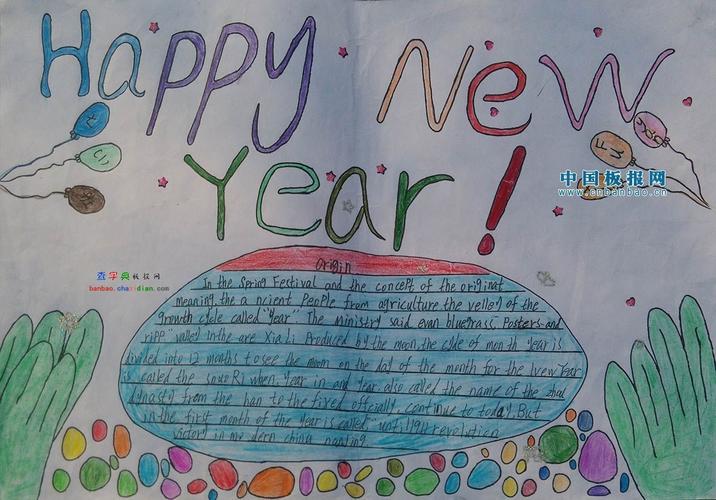 Happy New
Year!
中国板报网
www.cnbanbao.cn
查字典板报网
banbao.chazidian.com
Origin
In the Spring Festival and the concept of the original
meaning the a ncient People from agriculture the velley of the
growth cycle called "year" The ministry said evan bluegrass, Posters-and
ripp" valley in the are Xia Li Produced by the moon, the cycle of month year is
divided into 12 months to see the moon on the day of the month for the
is called the Ri when year in and year also called the name of the
dynasty from the han to the fixed officially, continue to today. But
in the first month of the year is called "until 1911 revolution
victory in mo dern china nanjing